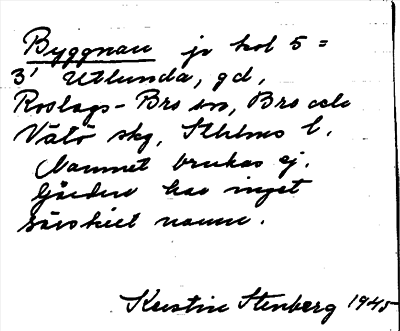 Byggnau jr kol 5 =
3' Utlunda, gd,
Roslags-Bro sn, Bro och
Vätö skg, Sthlms l.
Namnet brukas ej.
Gården har inget
särskilt namn.
Kerstin Stenberg 1945